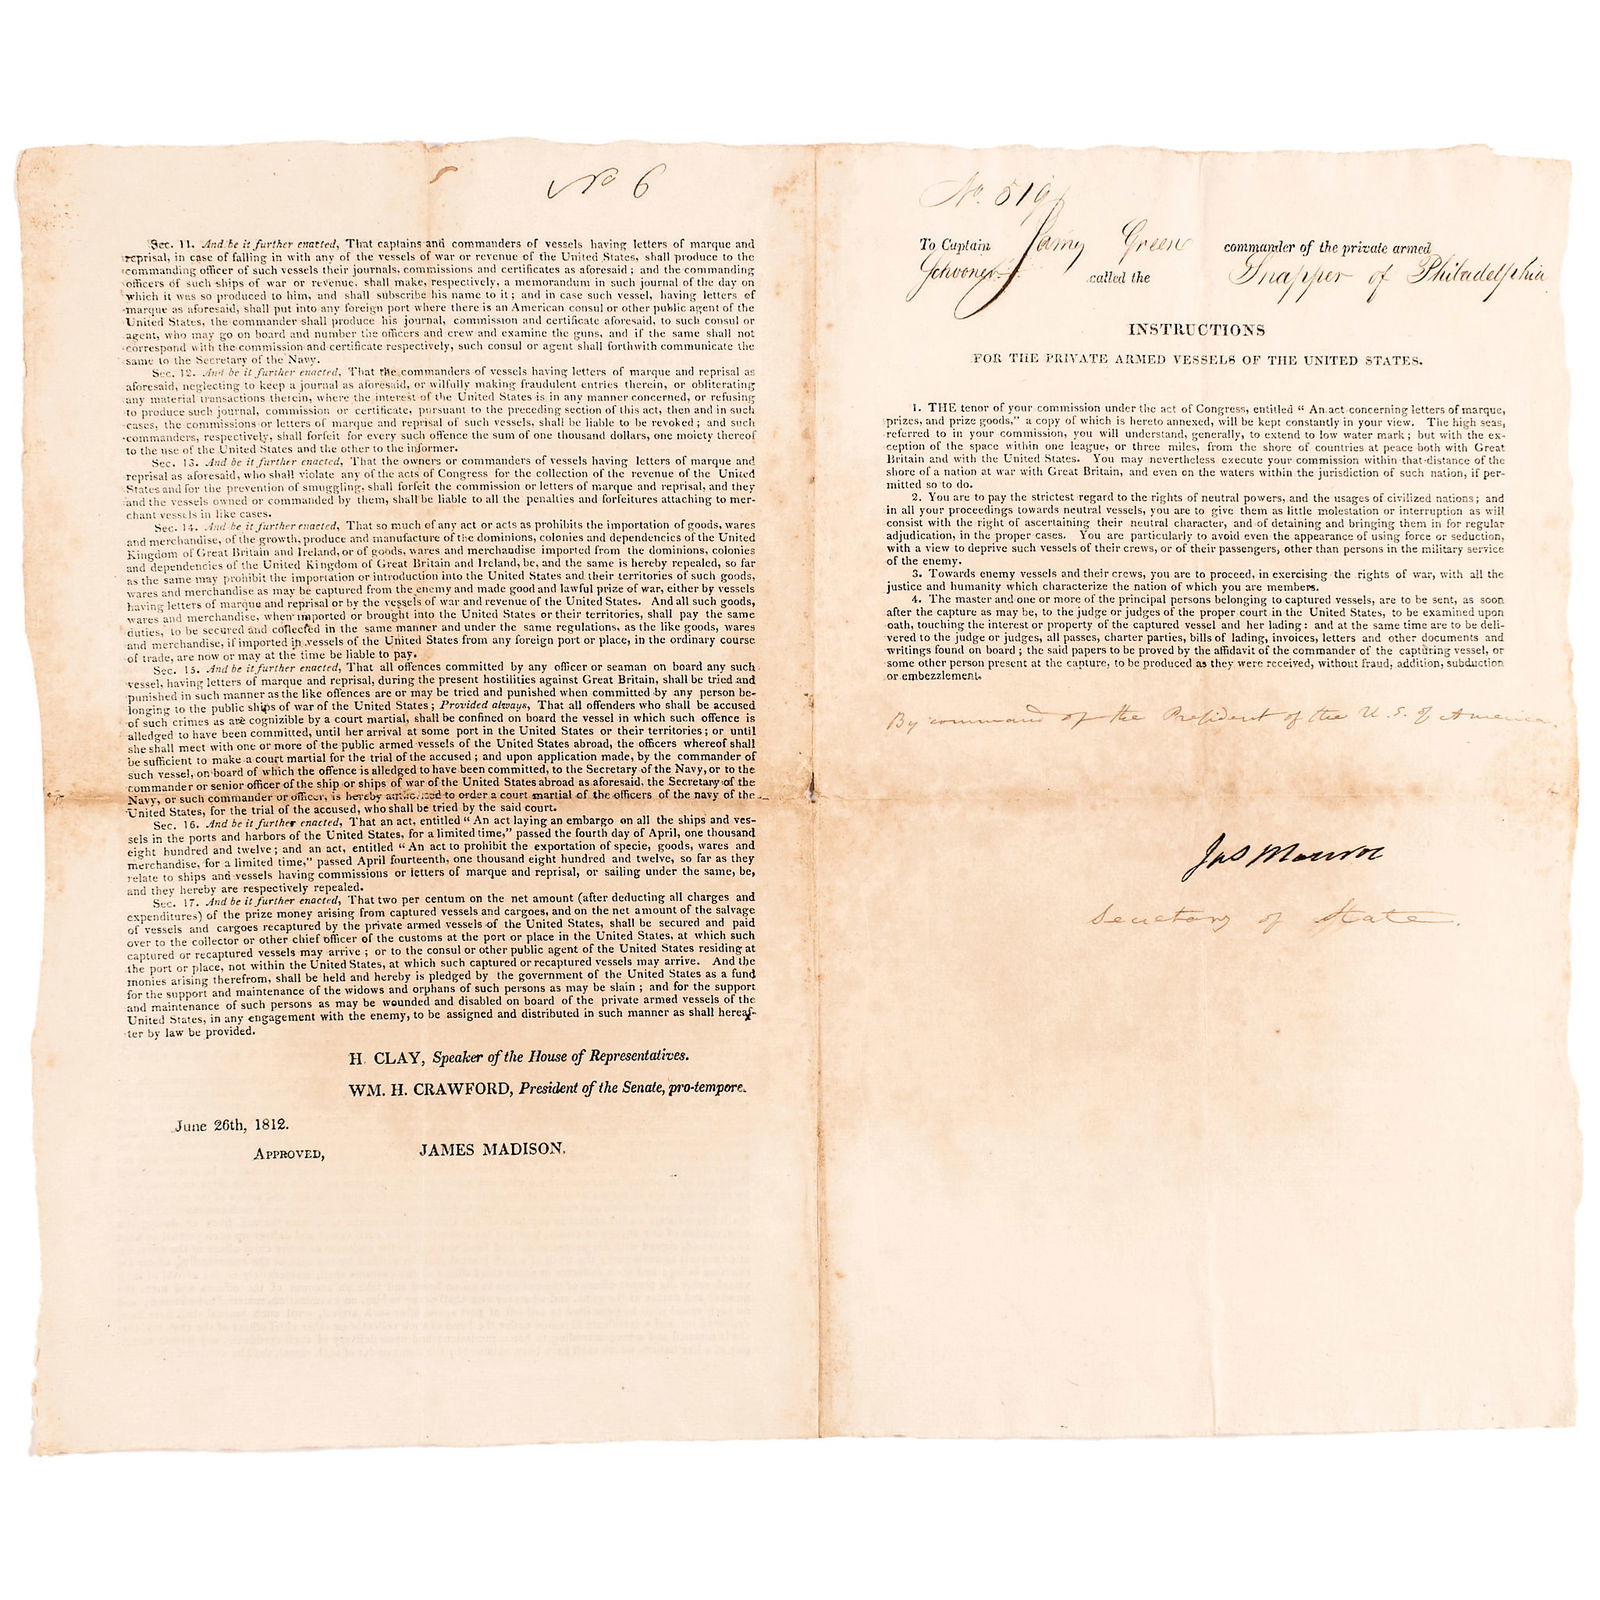 No 6
Sec. 11. And be it further enacted, That captains and commanders of vessels having letters of marque and
reprisal, in case of falling in with any of the vessels of war or revenue of the United States, shall produce to the
commanding officer of such vessels their journals, commissions and certificates as aforesaid; and the commanding
officers of such ships of war or revenue, shall make, respectively, a memorandum in such journal of the day on
which it was so produced to him, and shall subscribe his name to it; and in case such vessel, having letters of
marque as aforesaid, shall put into any foreign port where there is an American consul or other public agent of the
United States, the commander shall produce his journal, commission and certificate aforesaid, to such consul or
agent, who may go on board and number the officers and crew and examine the guns, and if the same shall not
correspond with the commission and certificate respectively, such consul or agent shall forthwith communicate the
same to the Secretary of the Navy.
Sec. 12. And be it further enacted, That the commanders of vessels having letters of marque and reprisal as
aforesaid, neglecting to keep a journal as aforesaid, or wilfully making fraudulent entries therein, or obliterating
any material transactions therein, where the interest of the United States is in any manner concerned, or refusing
to produce such journal, commission or certificate, pursuant to the preceding section of this act, then and in such
cases, the commissions or letters of marque and reprisal of such vessels, shall be liable to be revoked; and such
commanders, respectively, shall forfeit for every such offence the sum of one thousand dollars, one moiety thereof
to the use of the United States and the other to the informer.
Sec. 13. And be it further enacted, That the owners or commanders of vessels having letters of marque and
reprisal as aforesaid, who shall violate any of the acts of Congress for the collection of the revenue of the United
States and for the prevention of smuggling, shall forfeit the commission or letters of marque and reprisal, and they
and the vessels owned or commanded by them, shall be liable to all the penalties and forfeitures attaching to mer-
chant vessels in like cases.
Sec. 14. And be it further enacted, That so much of any act or acts as prohibits the importation of goods, wares
and merchandise, of the growth, produce and manufacture of the dominions, colonies and dependencies of the United
Kingdom of Great Britain and Ireland, or of goods, wares and merchandise imported from the dominions, colonies
and dependencies of the United Kingdom of Great Britain and Ireland, be, and the same is hereby repealed, so far
as the same may prohibit the importation or introduction into the United States and their territories of such goods,
wares and merchandise as may be captured from the enemy and made good and lawful prize of war, either by vessels
having letters of marque and reprisal or by the vessels of war and revenue of the United States. And all such goods,
wares and merchandise, when imported or brought into the United States or their territories, shall pay the same
duties, to be secured and collected in the same manner and under the same regulations, as the like goods, wares
and merchandise, if imported in vessels of the United States from any foreign port or place, in the ordinary course
of trade, are now or may at the time be liable to pay.
Sec. 15. And be it further enacted, That all offences committed by any officer or seaman on board any such
vessel, having letters of marque and reprisal, during the present hostilities against Great Britain, shall be tried and
punished in such manner as the like offences are or may be tried and punished when committed by any person be-
longing to the public ships of war of the United States; Provided always, That all offenders who shall be accused
of such crimes as are cognizible by a court martial, shall be confined on board the vessel in which such offence is
alledged to have been committed, until her arrival at some port in the United States or their territories; or until
she shall meet with one or more of the public armed vessels of the United States abroad, the officers whereof shall
be sufficient to make a court martial for the trial of the accused; and upon application made, by the commander of
such vessel, on board of which the offence is alledged to have been committed, to the Secretary of the Navy, or to the
commander or senior officer of the ship or ships of war of the United States abroad as aforesaid, the Secretary of the
Navy, or such commander or officer, is hereby authorized to order a court martial of the officers of the navy of the
United States, for the trial of the accused, who shall be tried by the said court.
Sec. 16. And be it further enacted, That an act, entitled "An act laying an embargo on all the ships and ves-
sels in the ports and harbors of the United States, for a limited time," passed the fourth day of April, one thousand
eight hundred and twelve; and an act, entitled "An act to prohibit the exportation of specie, goods, wares and
merchandise, for a limited time," passed April fourteenth, one thousand eight hundred and twelve, so far as they
relate to ships and vessels having commissions or letters of marque and reprisal, or sailing under the same, be,
and they hereby are respectively repealed.
Sec. 17. And be it further enacted, That two per centum on the net amount (after deducting all charges and
expenditures) of the prize money arising from captured vessels and cargoes, and on the net amount of the salvage
of vessels and cargoes recaptured by the private armed vessels of the United States, shall be secured and paid
over to the collector or other chief officer of the customs at the port or place in the United States, at which such
captured or recaptured vessels may arrive; or to the consul or other public agent of the United States residing at
the port or place, not within the United States, at which such captured or recaptured vessels may arrive. And the
monies arising therefrom, shall be held and hereby is pledged by the government of the United States as a fund
for the support and maintenance of the widows and orphans of such persons as may be slain; and for the support
and maintenance of such persons as may be wounded and disabled on board of the private armed vessels of the
United States, in any engagement with the enemy, to be assigned and distributed in such manner as shall hereaf-
ter by law be provided.
H. CLAY, Speaker of the House of Representatives.
WM. H. CRAWFORD, President of the Senate, pro-tempore.
June 26th, 1812.
APPROVED, JAMES MADISON.
No. 519
To Captain Green commander of the private armed
Schooner called the Snapper of Philadelphia
INSTRUCTIONS
FOR THE PRIVATE ARMED VESSELS OF THE UNITED STATES.
1. THE tenor of your commission under the act of Congress, entitled "An act concerning letters of marque,
prizes, and prize goods," a copy of which is hereto annexed, will be kept constantly in your view. The high seas,
referred to in your commission, you will understand, generally, to extend to low water mark; but with the ex-
ception of the space within one league, or three miles, from the shore of countries at peace both with Great
Britain and with the United States. You may nevertheless execute your commission within that distance of the
shore of a nation at war with Great Britain, and even on the waters within the jurisdiction of such nation, if per-
mitted so to do.
2. You are to pay the strictest regard to the rights of neutral powers, and the usages of civilized nations; and
in all your proceedings towards neutral vessels, you are to give them as little molestation or interruption as will
consist with the right of ascertaining their neutral character, and of detaining and bringing them in for regular
adjudication, in the proper cases. You are particularly to avoid even the appearance of using force or seduction,
with a view to deprive such vessels of their crews, or of their passengers, other than persons in the military service
of the enemy.
3. Towards enemy vessels and their crews, you are to proceed, in exercising the rights of war, with all the
justice and humanity which characterize the nation of which you are members.
4. The master and one or more of the principal persons belonging to captured vessels, are to be sent, as soon
after the capture as may be, to the judge or judges of the proper court in the United States, to be examined upon
oath, touching the interest or property of the captured vessel and her lading: and at the same time are to be deli-
vered to the judge or judges, all passes, charter parties, bills of lading, invoices, letters and other documents and
writings found on board; the said papers to be proved by the affidavit of the commander of the capturing vessel, or
some other person present at the capture, to be produced as they were received, without fraud, addition, subduction
or embezzlement.
By command of the President of the U. S. of America.
Jas Monroe
Secretary of State.